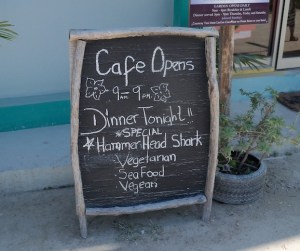 Cafe Opens
9am 9pm
Dinner Tonight!!
*SPECIAL
*Hammer Head Shark
Vegetarian
Sea Food
Vegean